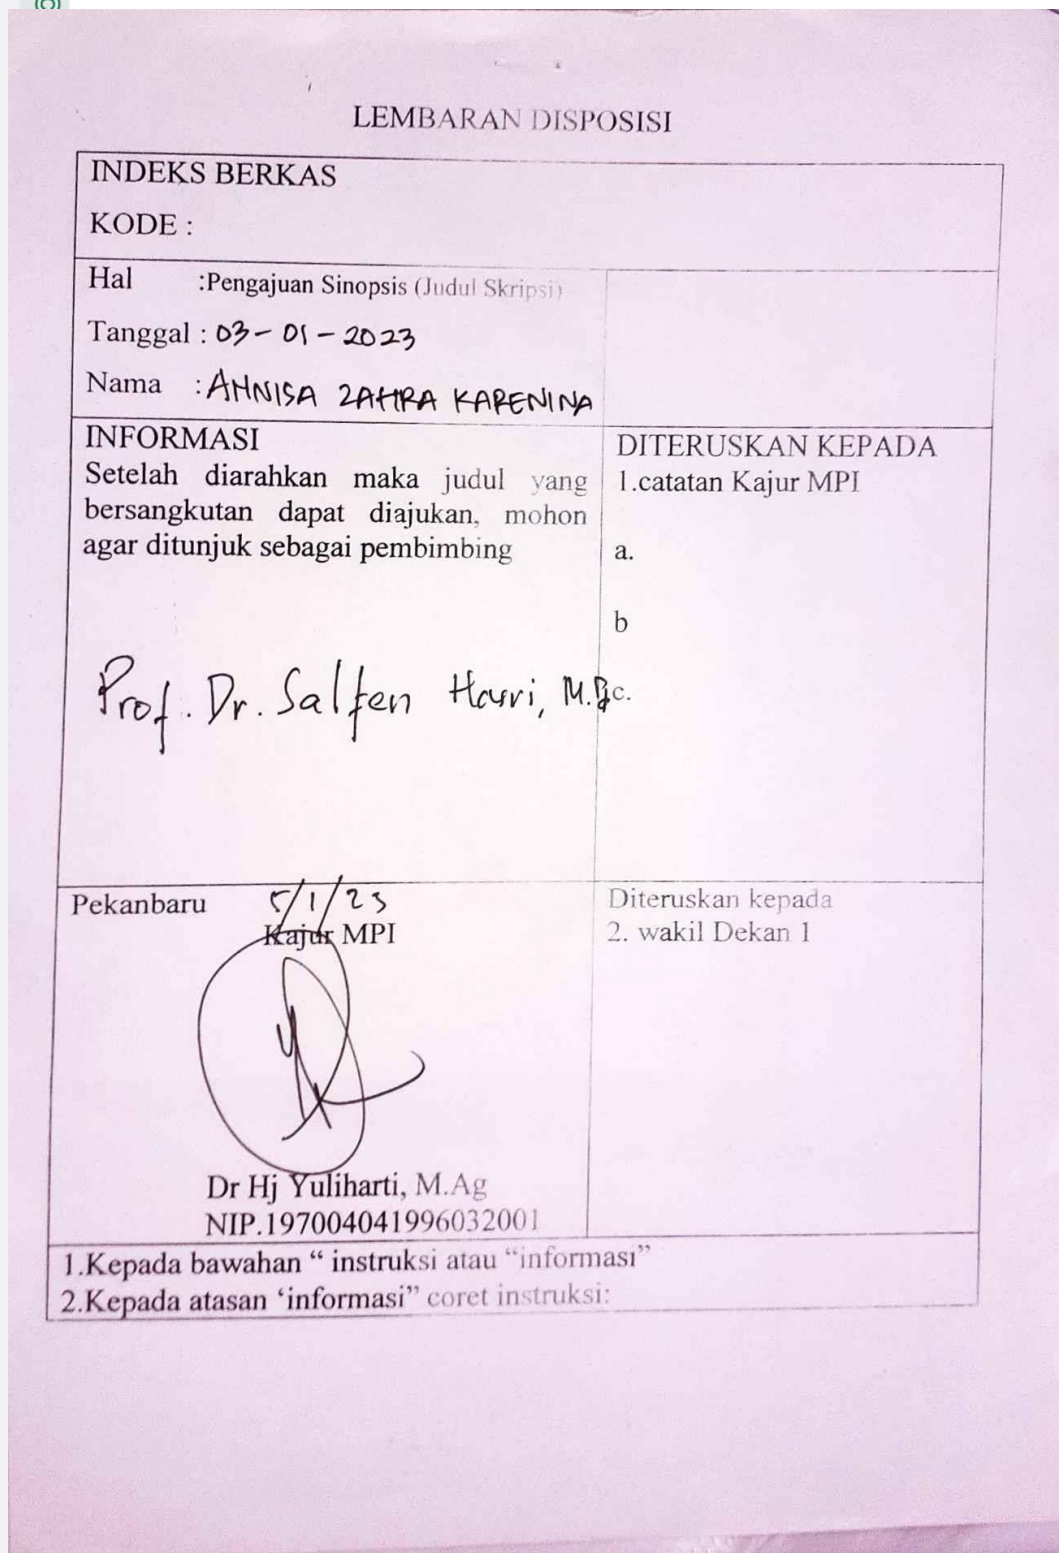 LEMBARAN DISPOSISI
INDEKS BERKAS
KODE :
Hal :Pengajuan Sinopsis (Judul Skripsi)
Tanggal : 03-01-2023
Nama : AHNISA ZAHRA KARENINA
INFORMASI
Setelah diarahkan maka judul yang
bersangkutan dapat diajukan, mohon
agar ditunjuk sebagai pembimbing
Prof. Dr. Salfen Hasri, M.Sc.
DITERUSKAN KEPADA
1.catatan Kajur MPI
a.
b
Pekanbaru 5/1/23
Kajur MPI
Dr Hj Yuliharti, M.Ag
NIP.197004041996032001
Diteruskan kepada
2. wakil Dekan 1
1.Kepada bawahan “ instruksi atau “informasi”
2.Kepada atasan ‘informasi” coret instruksi: